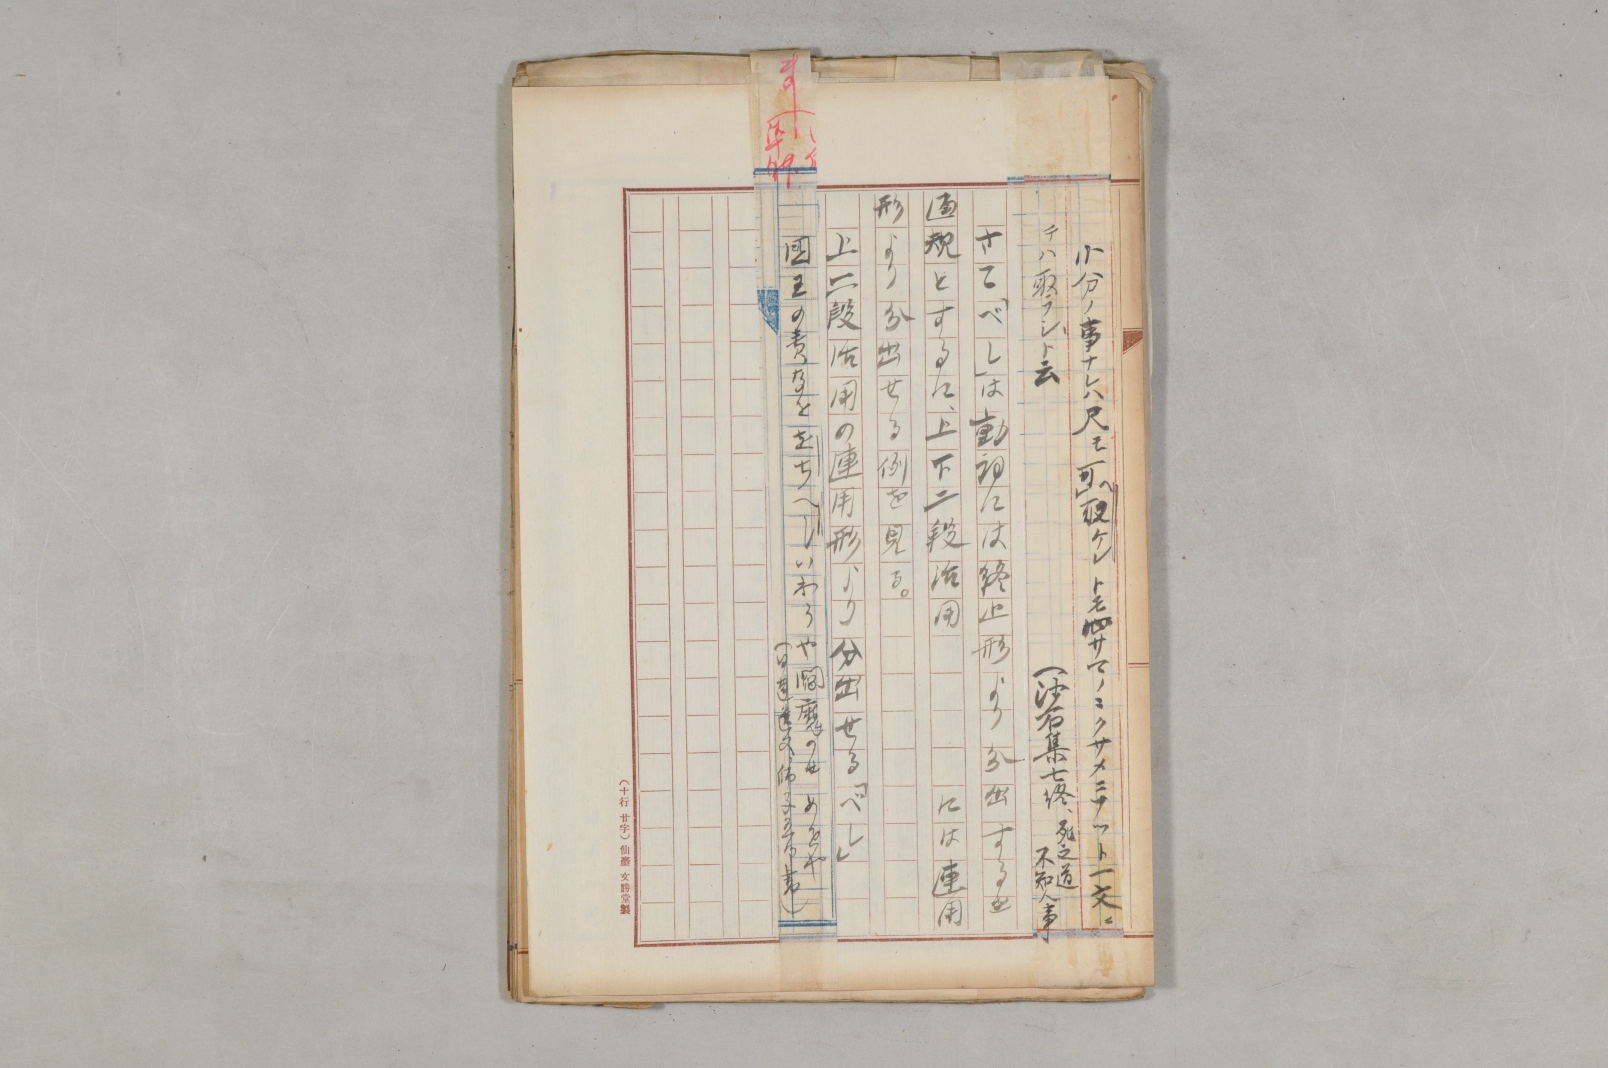 小分ノ事ナレハ尺モ可取ケレトモ心サマノコクサメニサツト一文ニ
テハ取ラジト云
(沙石集七終、死之道不知人事
さて「べし」は動詞には終止形より分出するを
通規とするに、上下二段活用には連用
形より分出せる例を見る。
上二段活用の連用形より分出せる「べし」
國王の責なををちべしいわうや閻魔のせめをや
(日蓮遺文
(十行 廿字) 仙臺 文勝堂製